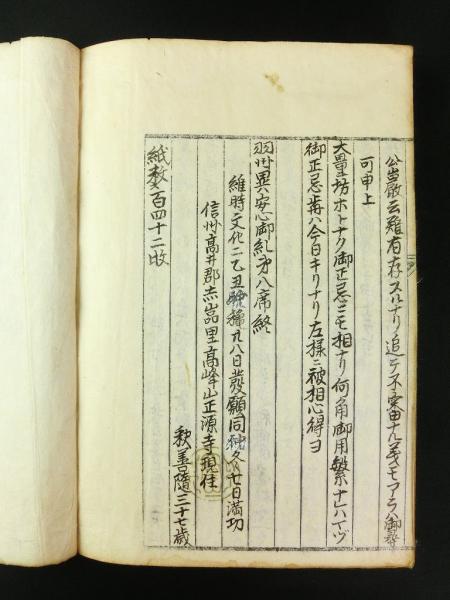 公巌云難有存スルナリ追テ不審ナル義モアラハ御尋
可申上
大量坊ホトナク御正忌ニモ相ナリ何角御用繁ナレハイツ
御正忌前ハ今日キリナリ左様ニ被相心得ヨ
羽州異安心御糺才八席終
維時文化二乙丑 種九八日発願同 七日満功
信州高井郡赤岩里高峰山正源寺現住
釈善随三十七歳
紙数百四十二枚